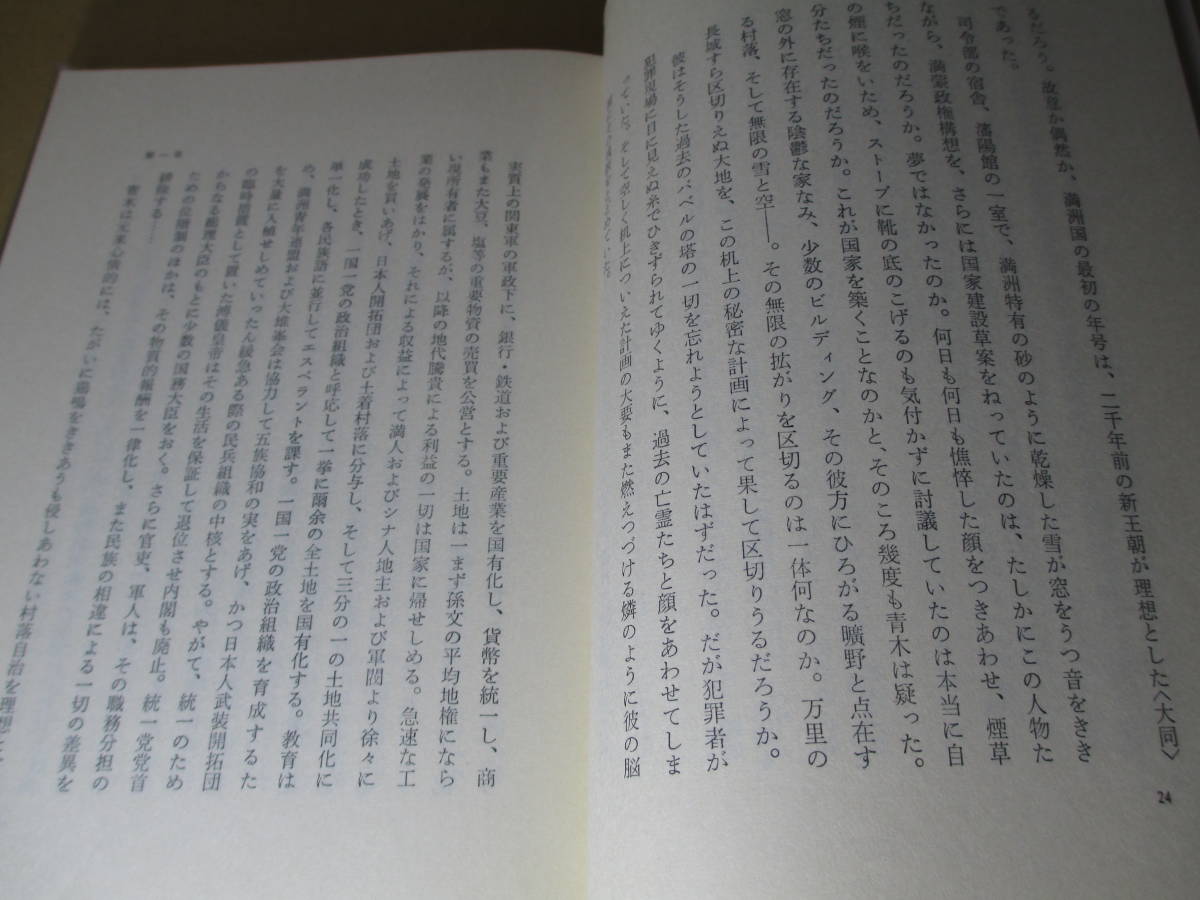 24
るだろう。故意か偶然か、満洲国の最初の年号は、二千年前の新王朝が理想とした〈大同〉
であった。
司令部の宿舎、瀋陽館の一室で、満洲特有の砂のように乾燥した雪が窓をうつ音をきき
ながら、満蒙政権構想を、さらには国家建設草案をねっていたのは、たしかにこの人物た
ちだったのだろうか。夢ではなかったのか。何日も何日も憔悴した顔をつきあわせ、煙草
の煙に喉をいため、ストーブに靴の底のこげるのも気付かずに討議していたのは本当に自
分たちだったのだろうか。これが国家を築くことなのかと、そのころ幾度も青木は疑った。
窓の外に存在する陰鬱な家なみ、少数のビルディング、その彼方にひろがる曠野と点在す
る村落、そして無限の雪と空――。その無限の拡がりを区切るのは一体何なのか。万里の
長城すら区切りえぬ大地を、この机上の秘密な計画によって果して区切りうるだろうか。
彼はそうした過去のバベルの塔の一切を忘れようとしていたはずだった。だが犯罪者が
犯罪現場に目に見えぬ糸でひきずられてゆくように、過去の亡霊たちと顔をあわせてしま
っていた。そして空しく机上についえた計画の大要もまた燃えつづける燐のように彼の脳
実質上の関東軍の軍政下に、銀行・鉄道および重要産業を国有化し、貨幣を統一し、商
業もまた大豆、塩等の重要物資の売買を公営とする。土地は一まず孫文の平均地権になら
い現所有者に属するが、以降の地代騰貴による利益の一切は国家に帰せしめる。急速な工
業の発展をはかり、それによる収益によって満人およびシナ人地主および軍閥より徐々に
土地を買いあげ、日本人開拓団および土着村落に分与し、そして三分の一の土地共同化に
成功したとき、一国一党の政治組織と呼応して一挙に爾余の全土地を国有化する。教育は
単一化し、各民族語に並行してエスペラントを課す。一国一党の政治組織を育成するた
め、満洲青年連盟および大雄峯会は協力して五族協和の実をあげ、かつ日本人武装開拓団
を大量に入植せしめていったん緩急ある際の民兵組織の中核とする。やがて、統一のため
の臨時措置として置いた溥儀皇帝はその生活を保証して退位させ内閣も廃止。統一党党首
からなる総理大臣のもとに少数の国務大臣をおく。さらに官吏、軍人は、その職務分担の
ための位階制のほかは、その物質的報酬を一律化し、また民族の相違による一切の差異を
排除する……
青木は元来心情的には、たがいに鶏鳴をききあうも侵しあわない村落自治を理想と
第一章